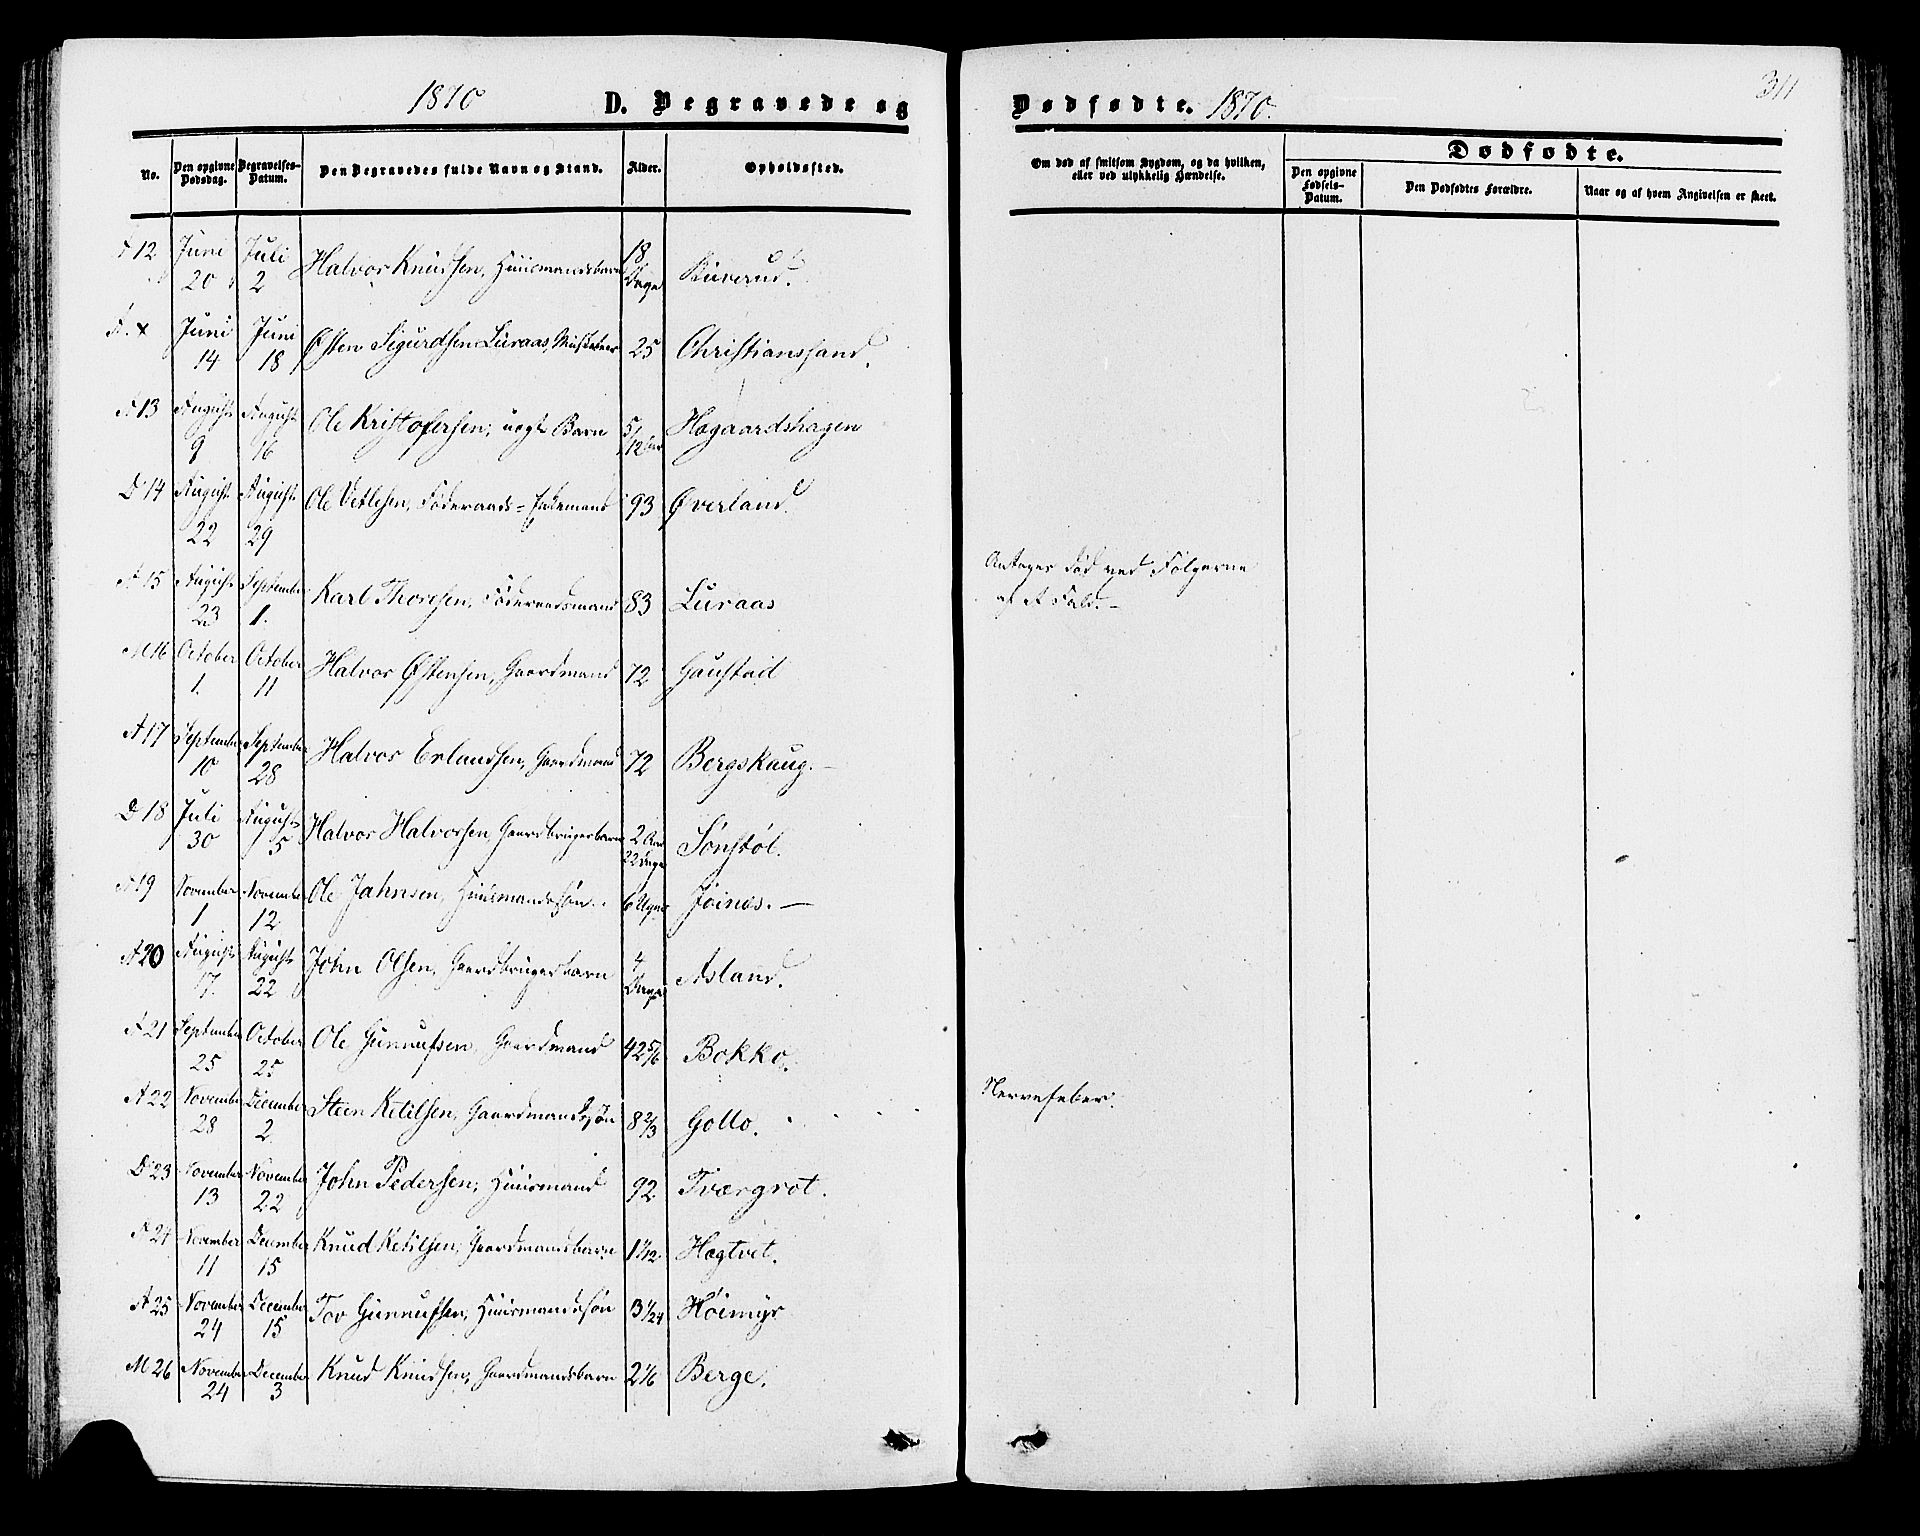 1870 D. Begravede og
No. Den opgivne Dødsdag. Begravelses-Datum. Den Begravedes fulde Navn og Stand. Alder. Opholdssted.
12 Juni 20 Juli 2 Halvor Knudsen, Huusmandsbarn 18 Dage
Juni 14 Juni 18 Østen Sigurdsen Luraas, Musketeer 25 Christianssand.
A 13 August 9 August 16 Ole Kristofersen, uægt Barn 5/12 Aar Høgaardshagen
D 14 August 22 August 29 Ole Vetlesen, Føderaads-Enkemand 93 Øverland.
A 15 August 23 September 1. Karl Thoresen, Føderaadsmand 83 Luraas
M 16 October 1. October 11 Halvor Østensen, Gaardmand 72 Gaustad
A 17 September 10 September 28 Halvor Erlandsen, Gaardmand 72 Bergskaug. —
D 18 Juli 30 August 5 Halvor Halvorsen, Gaardbrugerbarn 2 Aar 22 Dage Sønstøl.
A 19 November 1. November 12 Ole Jahnsen, Huusmandssøn. 6 Uger Jøines. —
A 20 August 17. August 22 John Olsen, Gaardbrugerbarn 4 Dage Asland.
A 21 September 25 October 25 Ole Gunnufsen, Gaardmand 42 5/6 Bokko.
A 22 November 28 December 2 Steen Ketilsen, Gaardmandssøn 8 2/3 Gollo.
D 23 November 13 November 22 John Pedersen, Huusmand 92 Tværgrot.
A 24 November 11 December 15 Knud Ketilsen, Gaardmandsbarn 1 1/12 Høgtvet.
A 25 November 24 December 15 Tov Gunnufsen, Huusmandssøn 3 1/24 Høimyr
M 26 November 24 December 3 Knud Knudsen, Gaardmandsbarn 2 1/6 Berge.
Dødfødte. 1870.
311
Om død af smitsom Sygdom, og da hvilken,
eller ved ulykkelig Hændelse.
Dødfødte.
Den opgivne Fødsels-Datum. Den Dødfødtes Forældre. Naar og af hvem Angivelsen er skeet.
Antages død ved Følgerne
af et Fald. —
Nervefeber.